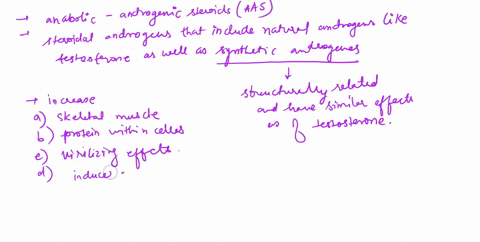 → anabolic - androgenic steroids (AAS)
→ steroidal androgens that include natural androgens like
testosterone as well as synthetic androgenes
↓
structurally related
and have similar effects
as testosterone.
→ increase
a) skeletal muscle
b) protein within cells
c) virilizing effects.
d) induce.